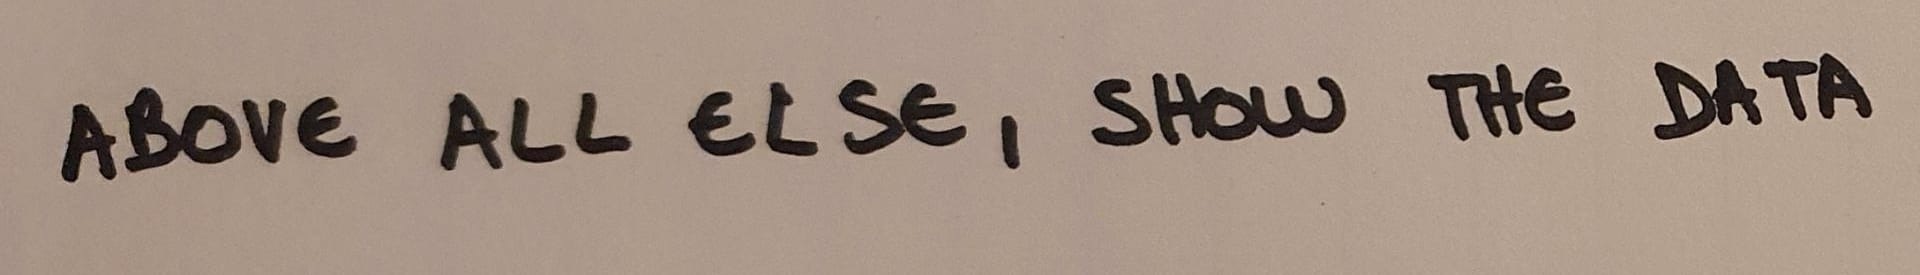 ABOVE ALL ELSE, SHOW THE DATA